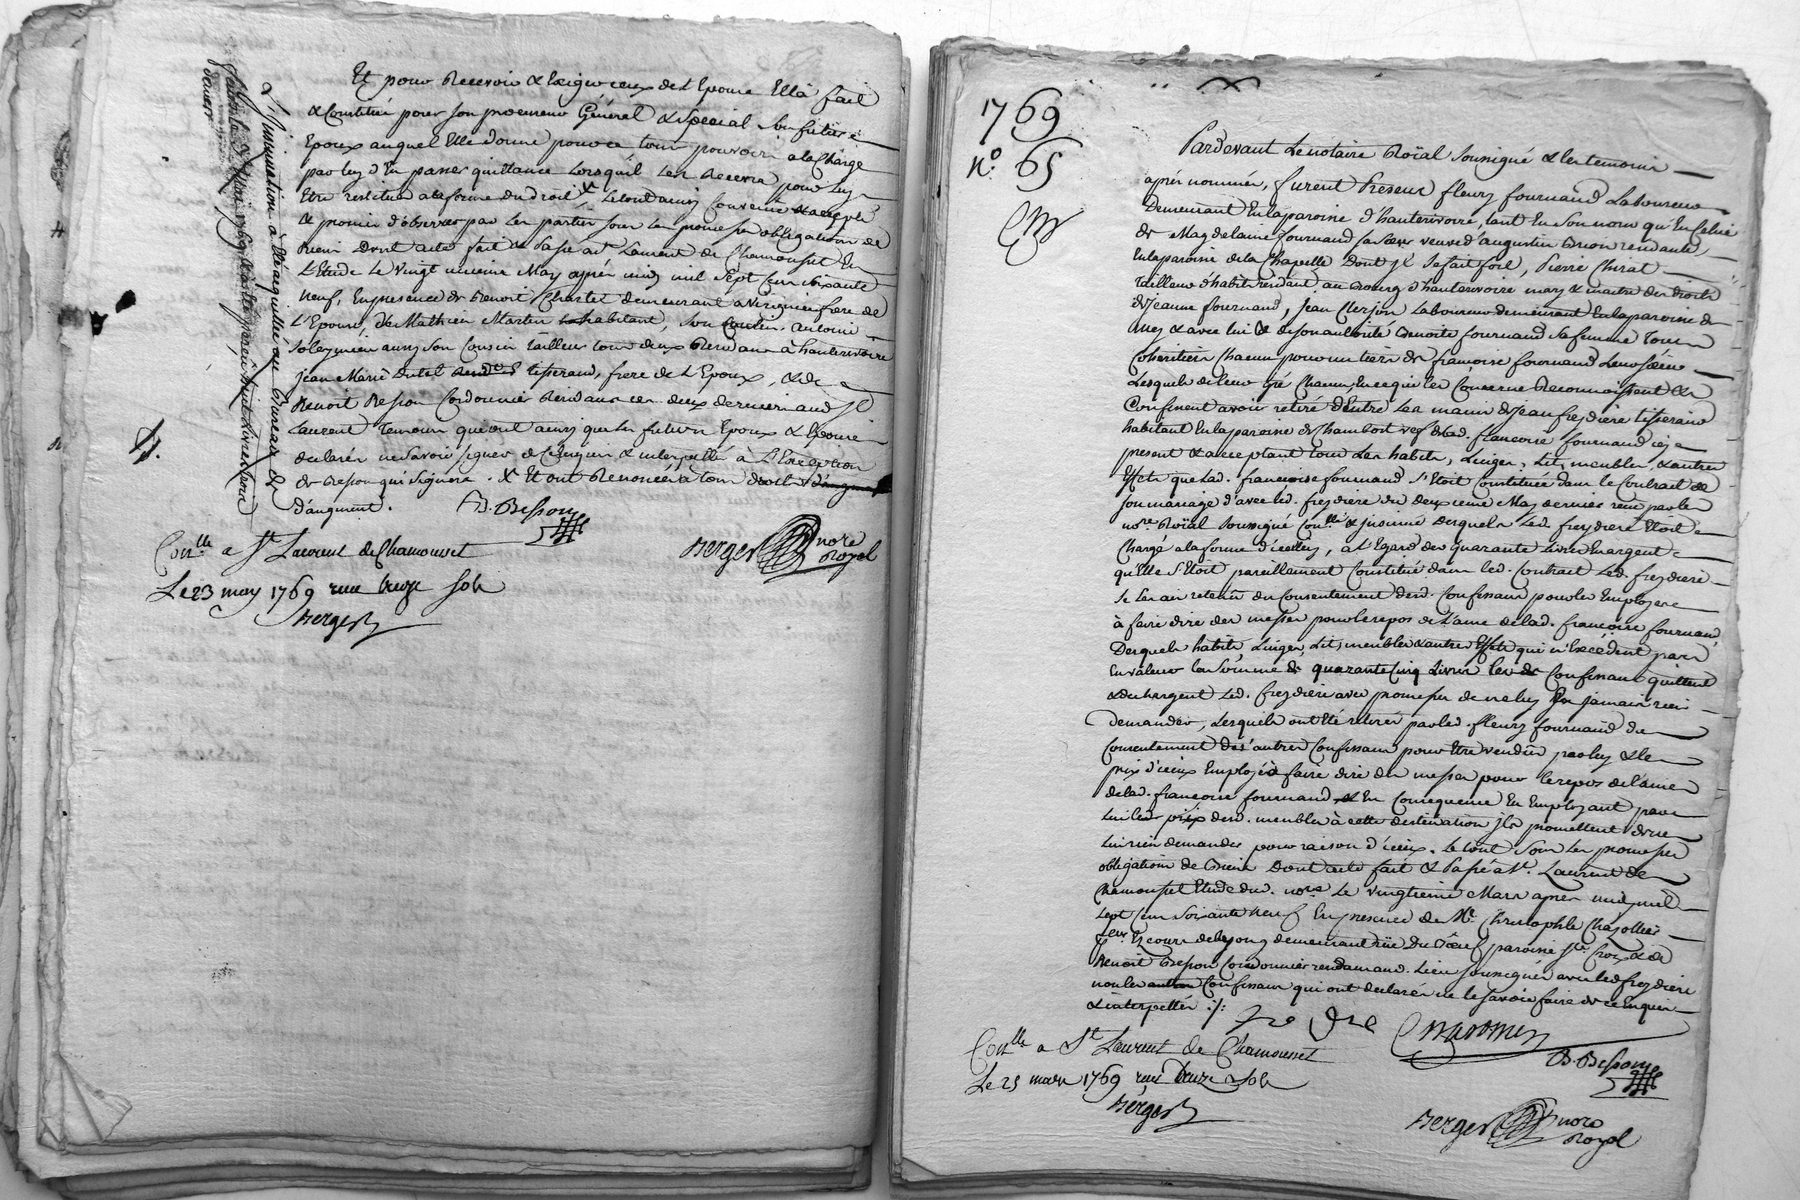 Et pour Recevoir & Exiger ceux de L'Epouse Ella fait
& Constitué pour son procureur Général & spécial son futur
Epoux auquel Elle donne pouvoir à la Charge
par luy d'En passer quittance Lorsquil Les Recevra pour luy
Etre restitué a la forme du droit, x Le tout ainsy Convenu & accepté
& promis d'observer par Les parties sous Les promesses obligations de
Biens Dont acte fait & Passé a St Laurent de Chamousset En
L'Etude Le Vingt May après midy mil sept cent soixante
neuf, En presence de Benoit Chartet demeurant a frere de
L'Epouse, de Mathieu Martin habitant, son Antoine
aussy son Cousin tailleur tous deux Residans à hauterivoire
Jean Marie Dutel tisserand, frere de L'Epoux, & de
Benoit Besson Cordonnier Residans ces deux derniers aud
Laurent Temoins qui ont ainsy que Les futurs Epoux & Epouse
declarés ne savoir signer de Ce Enquis & interpellés à L'Exception
de Besson qui signera . x Et ont Renoncé a tous droits d'augment
d'augment.
B. Besson
Berger nore
Royal
Conlle a St Laurent de Chamousset
Le 23 may 1769 reçu treze sols
Berger
L'insinuation à été acquittée au Bureau de
1769
1769
No. 65
Pardevant Le notaire Roïal soussigné & les temoins
après nommés, furent Presens fleury fournand Laboureur
Demeurant En la paroisse d'hauterivoire, tant En son nom qu'En celui
de Magdelaine fournand sa sœur veuve d'augustin Brion residante
En la paroisse de la Chapelle Dont il se fait fort, Pierre Chirat
Tailleur d'habits residant au Bourg d'hauterivoire mary & maitre des droits
de Jeanne fournand, Jean Clerjon Laboureur demeurant En la paroisse de
& avec lui & de son autorité Benoite fournand sa femme Tous
Cohéritiers Chacun pour un tiers de françoise fournand Leur sœur
Lesquels de leur gré Chacun En ce qui les Concerne Reconnoissent &
Confessent avoir retiré d'Entre Les mains de Jean freydiere tisserand
habitant En la paroisse de Chambost veuf de lad. françoise fournand icy
present & acceptant tous Les habits, Linges, Lits, meubles, & autres
Effets que Lad. françoise fournand s'Etoit Constituée dans le Contract de
son mariage d'avec led. freydiere du deuxieme May dernier reçu par le
nore Roïal soussigné Conllé & insinué desquels Led. freydiere Etoit
Chargé a la forme d'iceluy, a L'Egard des quarante Livres En argent
qu'Elle s'Etoit pareillement Constitué dans led. Contract Led. freydiere
se Les aïr retenu du Consentement desd. Confessans pour les Employer
à faire dire des messes pour le repos de L'ame de lad. françoise fournand,
Desquels habits, Linges, Lits, meubles & autres Effets qui n'Excédent pas
En valeur La somme de quarante Cinq Livres Les Confessans quittent
& dechargent Led. freydiere avec promesses de ne luy En jamais rien
demander, Lesquels ont été retirés par led. fleury fournand du
Consentement des autres Confessans pour Etre vendus par luy & le
prix d'iceux Employé à faire dire des messes pour le repos de L'ame
de lad. françoise fournand & En Consequence En Employant par
lui led. prix desd. meubles à cette destination ils promettent de ne
lui rien demander pour raison d'iceux. Le tout sous Les promesses
obligations de Biens Dont acte fait & Passé a St. Laurent de
Chamousset Etude dud. nore Le vingtieme Mars après midy mil
sept cent soixante neuf En presence de Me. Christophle Chazottier
Es cours de Lyon y demeurant rüe Du Bœuf paroisse Ste Croix & de
Benoit Besson Cordonnier resident aud. Lieu soussignés avec led. freydiere
non les autres Confessans qui ont declarés ne le savoir faire de ce Enquis
& interpellés ./.
B. Besson
Conlle a St Laurent de Chamousset
Le 25 mars 1769 reçu treze sols
Berger
Berger nore
Royal